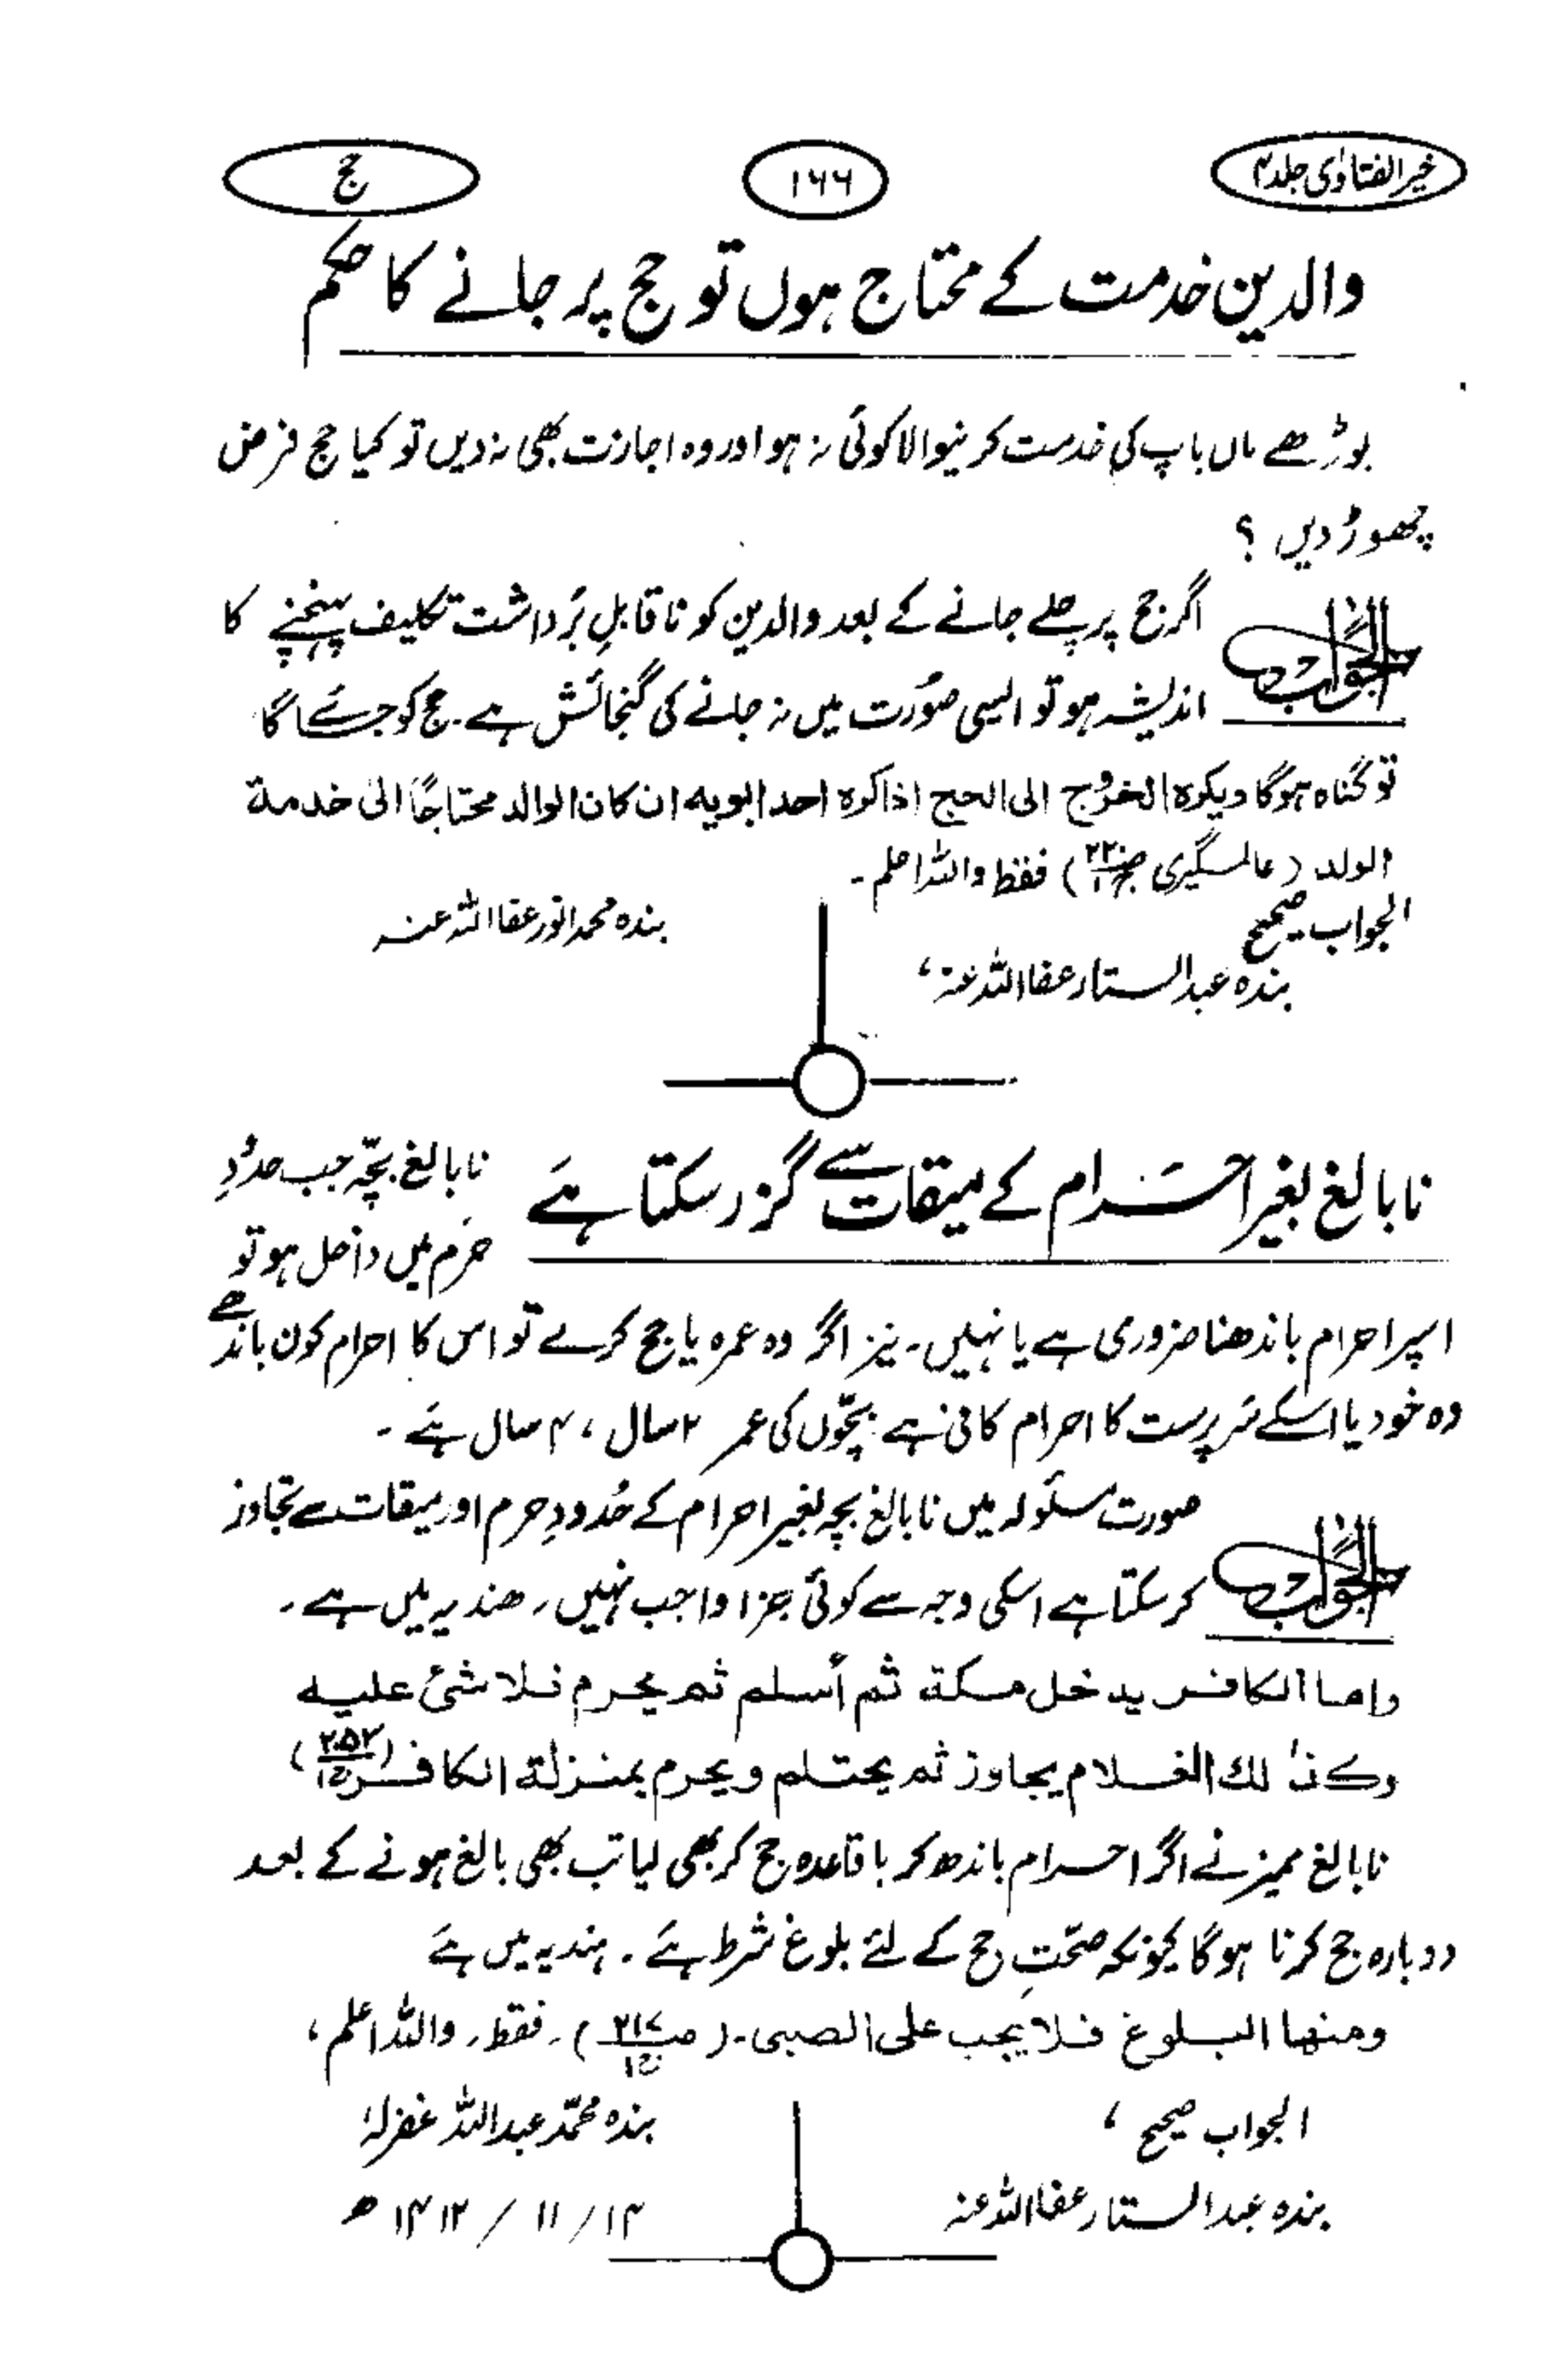 خیر الفتاوٰی جلد ۴
۱۶۶
حج
والدین خدمت کے محتاج ہوں تو حج پر جانے کا حکم
بوڑھے ماں باپ کی خدمت کرنیوالا کوئی نہ ہو اور وہ اجازت بھی نہ دیں تو کیا حج فرض
چھوڑ دیں ؟
الجواب
اگر حج پر چلے جانے کے بعد والدین کو ناقابلِ بَرداشت تکلیف پہنچنے کا
اندیشہ ہو تو ایسی صوُرت میں نہ جانے کی گنجائش ہے۔ حج کو جائے گا
تو گناہ ہوگا ویکرہ الخروُج الی الحج اذا کرہ احد ابویہ ان کان الوالد محتاجًا الیٰ خدمة
الولد (عالمگیری ص۲۲۰ ج۱) فقط واللہ اعلم۔
الجواب صحیح
بندہ محمد انور عفا اللہ عنہ
بندہ عبدالستار عفا اللہ عنہ،
نابالغ بغیر احرَام کے میقات سے گزر سکتا ہے
نابالغ بچّہ جب حدوُدِ
حرَم میں داخل ہو تو
اسپر احرام باندھنا ضروری ہے یا نہیں۔ نیز اگر وہ عمرہ یا حج کرے تو اس کا احرام کون باندھے
وہ خود یا اسکے سَرپرست کا احرام کافی ہے بچّوں کی عمر ۲ سال ، ۴ سال ہے ۔
الجواب
صورت مسئولہ میں نابالغ بچہ بغیر احرام کے حُدودِ حرم اور میقات سے تجاوز
کر سکتا ہے اسکی وجہ سے کوئی جزا واجب نہیں۔ ھندیہ میں ہے۔
واما الکافر یدخل مکة ثم أسلم ثم یحرم فلا شیٔ علیه
وکذٰلك الغلام یجاوز ثم یحتلم ویحرم بمنزلة الکافر (۲۵۳ ج۱)
نابالغ ممیز نے اگر احرام باندھ کر باقاعدہ حج کر بھی لیا تب بھی بالغ ہونے کے بعد
دوبارہ حج کرنا ہوگا کیونکہ صحّتِ حج کے لئے بلوغ شرط ہے ۔ ہندیہ میں ہے
ومنها البلوغ فلا یجب علی الصبی۔ (ص۲۱۷ ج۱)۔ فقط۔ واللہ اعلم،
الجواب صحیح ،
بندہ محمّد عبداللہ غفرلہٗ
بندہ عبدالستار عفا اللہ عنہ
۱۴ / ۱۱ / ۱۴۱۲ ھ